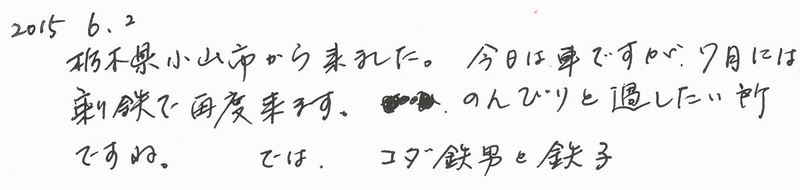 2015 6.2
栃木県小山市から来ました。今日は車ですが、7月には
乗り鉄で再度来ます。のんびりと過したい所
ですね。 では、 コダ鉄男と鉄子